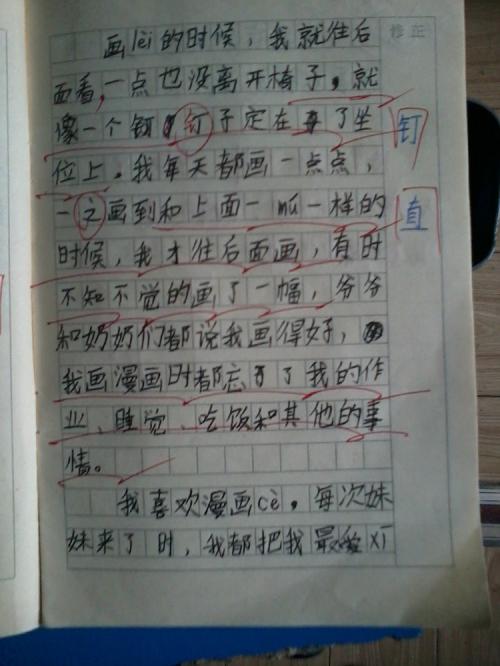 画lèi的时候，我就往后
修正
面看，一点也没离开椅子，就
像一个钉子定在了坐
钉
位上。我每天都画一点点，
一之画到和上面一mú一样的
直
时候，我才往后面画，有时
不知不觉的画了一幅，爷爷
和奶奶们都说我画得好，
我画漫画时都忘了我的作
业、睡觉、吃饭和其他的事
情。
我喜欢漫画cè，每次妹
妹来了时，我都把我最爱